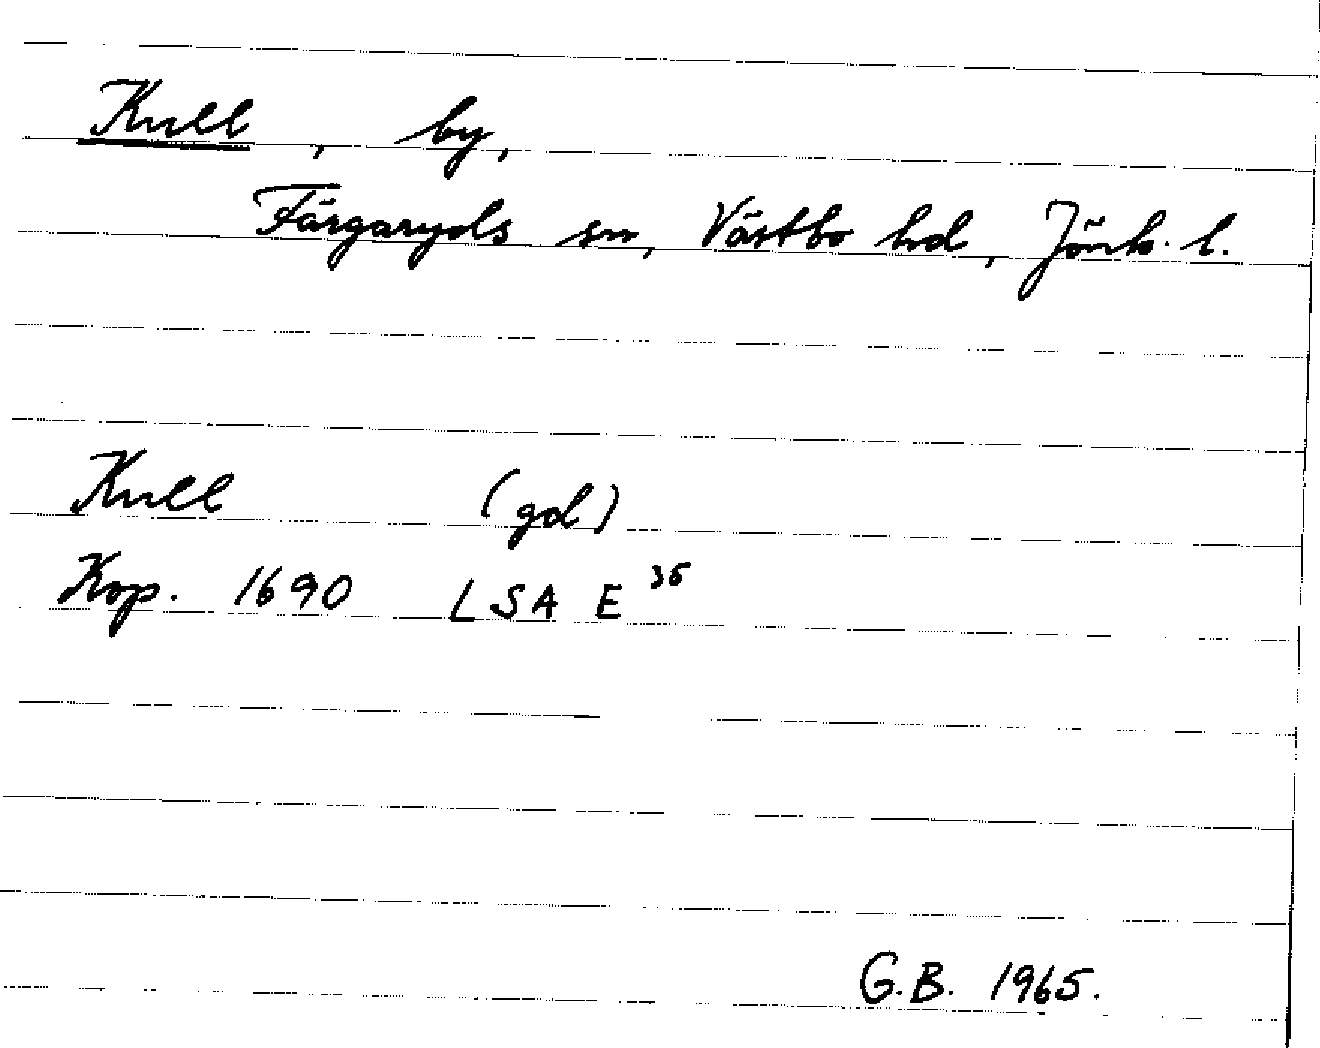 Kull, by,
Färgaryds sn, Västbo hd, Jönk. l.
Kull (gd)
Kop. 1690 LSA E 36
G.B. 1965.